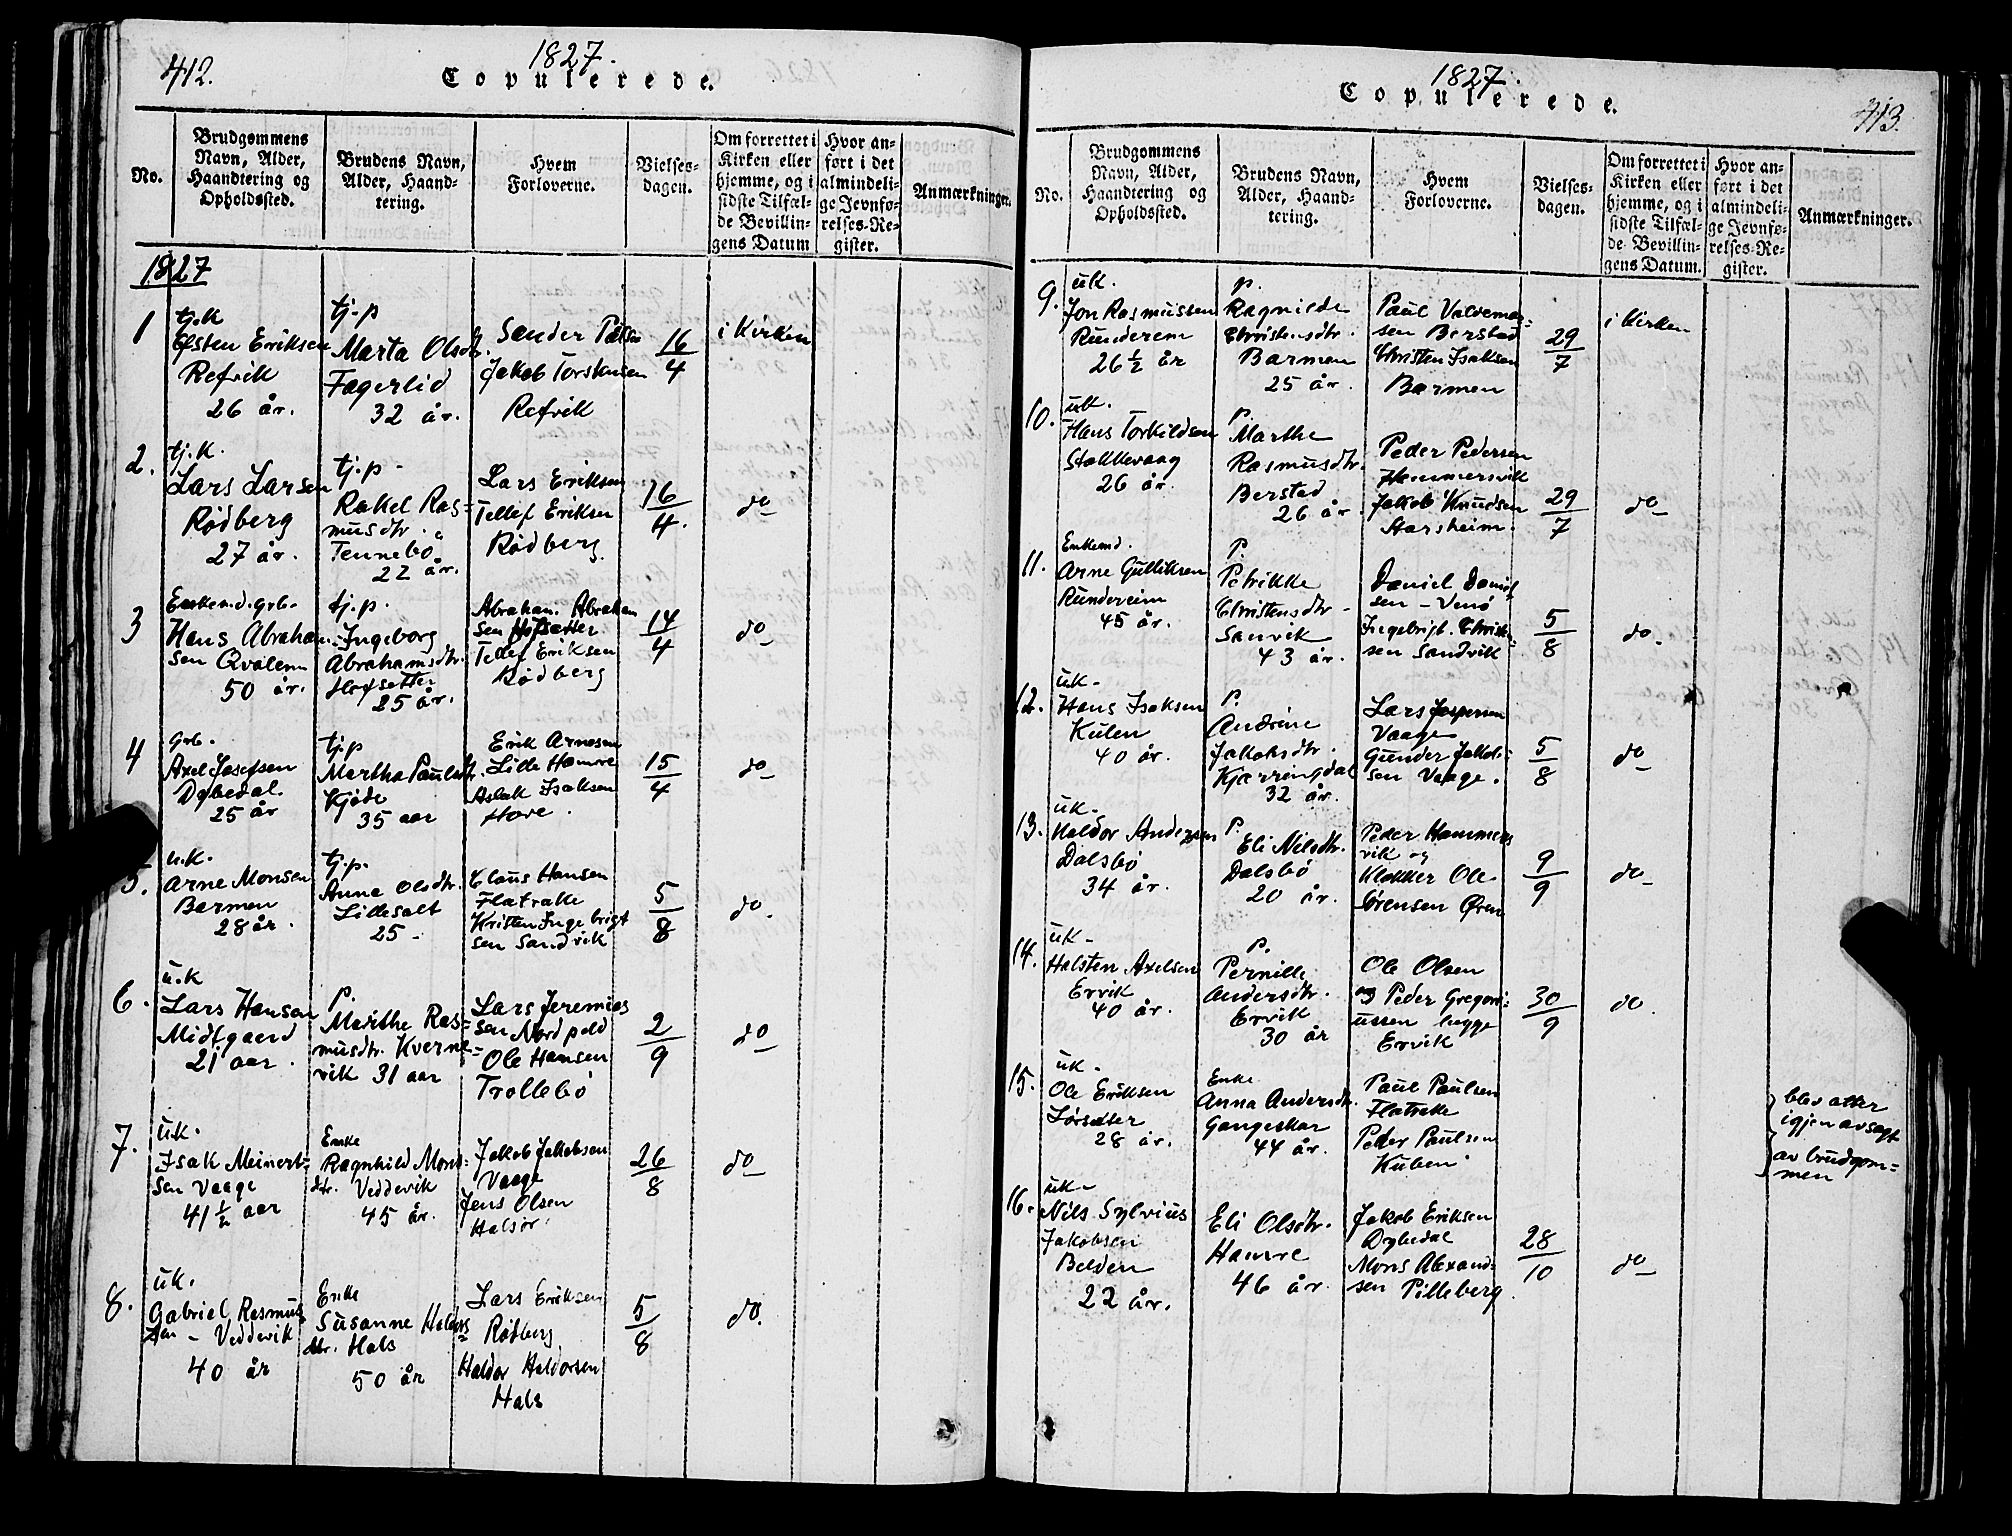 412.
1827.
Copulerede.
No.
Brudgommens
Navn, Alder,
Haandtering og
Opholdssted.
Brudens Navn,
Alder, Haand-
tering.
Hvem
Forloverne.
Vielses-
dagen.
Om forrettet i
Kirken eller
hjemme, og i
sidste Tilfæl-
de Bevillin-
gens Datum
Hvor an-
ført i det
almindeli-
ge Jevnfø-
relses-Re-
gister.
Anmærkninger.
1827
1
tj.k
Østen Eriksen
Refvik
26 år.
tj.p
Marta Olsdtr.
Fagerlid
32 år.
Sander
Jakob Torstensen
Refvik
16/4
i Kirken
2.
tj.k.
Lars Larsen
Rødberg
27 år.
tj.p.
Rakel Ras=
musdtr.
Tennebø
22 år.
Lars Eriksen
Tellef Eriksen
Rødberg
16/4.
do
3
Enkemd. grb.
Hans Abraham
sen Qvalem
50 år.
tj.p.
Ingeborg
Abrahamsdtr.
Hofsetter
25 år.
Abraham. Abraham
sen Hofsetter
Tellef Eriksen
Rødberg
14/4
do
4
grb.
Axel Josefsen
Dybedal
25 år
tj.p
Martha Paulsdtr.
Kjøde
35 aar
Erik Arnesen
Lille Hamre
Aslak Isaksen
Hove.
15/4
do
5.
u.k.
Arne Monsen
Barmen
28 år.
tj.p.
Anna Olsdtr.
Lillesalt
25 -
Claus Hansen
Flatrake
Kristen Ingebrigt
sen Sandvik
5/8
do.
6.
u.k
Lars Hansen
Midtgaard
21 aar.
p.
Marthe Ras=
musdtr. Kverne=
vik 31 aar
Lars Jeremias
sen Nordpeld
Ole Hansen
Trollebø
2/9
do
7.
uk.
Isak Meinert=
sen Vaage
41 1/2 aar
Enke
Ragnhild Mons=
dtr. Veddevik
45 år.
Jakob Jakobsen
Vaage
Jens Olsen
Halsør.
26/8
do
8.
uk.
Gabriel Rasmus
sen - Veddevik
40 år
Enke
Susanne Haldors
dtr. Hals
50 år
Lars Eriksen
Rødberg
Haldor Haldorsen
Hals
5/8
do.
1827.
Copulerede.
413.
No.
Brudgommens
Navn, Alder,
Haandtering og
Opholdssted.
Brudens Navn,
Alder, Haand-
tering.
Hvem
Forloverne.
Vielses-
dagen.
Om forrettet i
Kirken eller
hjemme, og i
sidste Tilfæl-
de Bevillin-
gens Datum.
Hvor an-
ført i det
almindeli-
ge Jevnfø-
relses-Re-
gister.
Anmærkninger.
9.
uk.
Jon Rasmussen
Runderem
26 1/2 år
p.
Ragnilde
Christensdtr.
Barmen
25 år.
Paul Valdemar=
sen Berstad
Christen Isaksen
Barmen
29/7
i Kirken
10.
uk.
Hans Torkildsen
Stokkevaag
26 år.
p.
Marthe
Rasmusdtr.
Berstad
26 år.
Peder Pedersen
Hammersvik
Jakob Knudsen
Aarsheim.
29/7
do
11.
Enkemd.
Arne Gulliksen
Rundereim
45 år.
p.
Petrikke
Christensdtr -
Sanvik
43 år.
Daniel Daniel
sen - Venø
Ingebrigt. Christen=
sen Sandvik
5/8
do.
12.
uk.
Hans Isaksen
Kulen
40 år.
p.
Andrine
Jakobsdtr.
Kjærringdal
32 år.
Lars Jespersen
Vaage
Gunder Jakob=
sen Vaage.
5/8
do
13.
uk.
Haldor Andersen
Dalsbø
34 år.
p.
Eli Nilsdtr.
Dalsbø
20 år.
Peder Hammers
vik og
Klokker Ole
Sørensen Øren
9/9
do
14.
uk.
Halsten Axelsen
Ervik
40 år.
p.
Pernille
Andersdtr.
Ervik
30 år
Ole Olsen
og Peder Gregori=
ussen begge
Ervik
30/9
do.
15.
uk.
Ole Eriksen
Lørsetter
28 år.
Enke
Anna Andersdtr.
Gangeskar
44 år.
Paul Paulsen
Flatrake
Peder Paulsen
Kuben
blev atter
igjen avsagt
av brudgom=
men
16.
uk.
Nils Sylvius
Jakobsen
Belden
22 år.
Eli Olsdtr.
Hamre
46 år.
Jakob Eriksen
Dybedal
Mons Alexand=
sen Pilleberg.
28/10
do